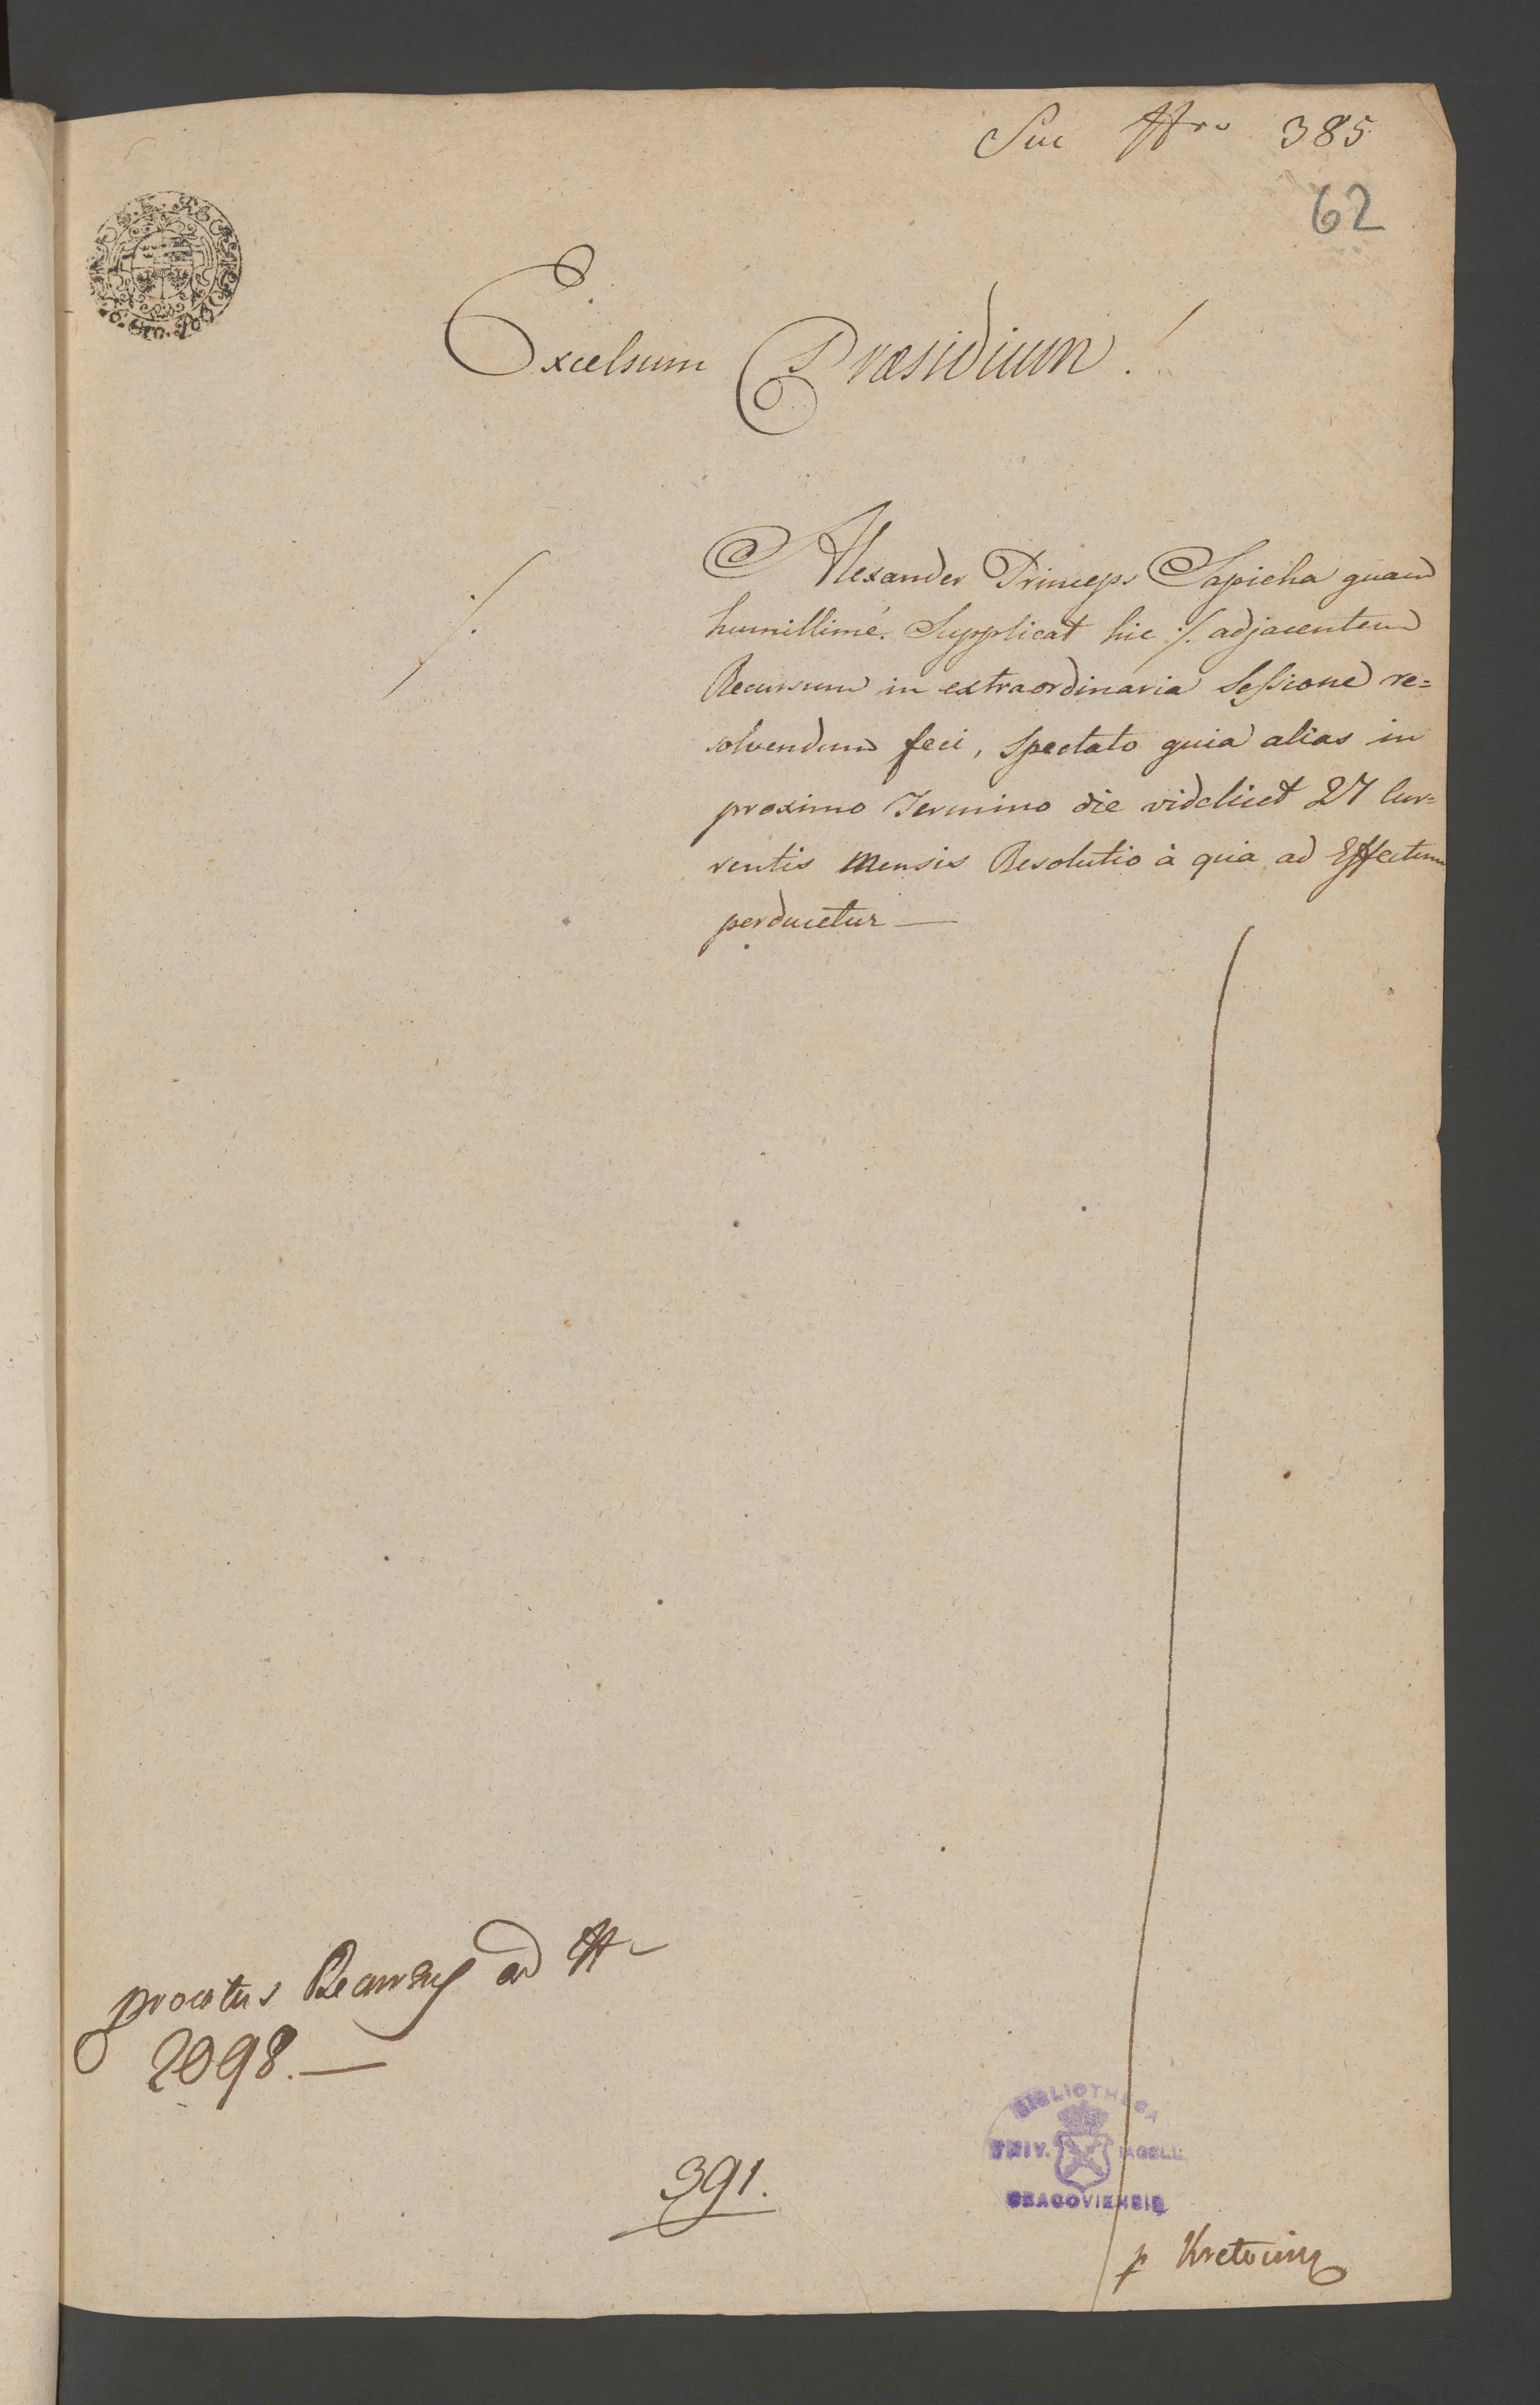 Sui Nro 385
62
Excelsum Præsidium!
Alexander Princeps Sapieha quam
humillimé Supplicat hic ·/. adjacentem
Recursum in extraordinaria Sessione re=
solvendum feci, Spectato quia alias in
proximo Termino die videlicet 27 Cur=
rentis Mensis Resolutio à quia ad Effectum
perducetur —
ad Nr
2098. —
391.
BIBLIOTHECA
UNIV. IAGELL.
CRACOVIENSIS